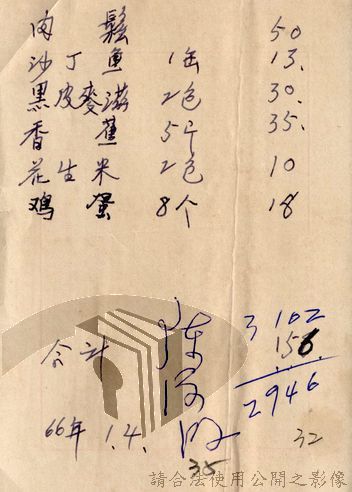 肉鬆 50
沙丁魚 1缶 13.
黑皮麥滋 2包 30.
香蕉 5斤 35.
花生米 2包 10
鸡蛋 8个 18
3102
156
合計
2946
66年 1.4.
32
35
請合法使用公開之影像